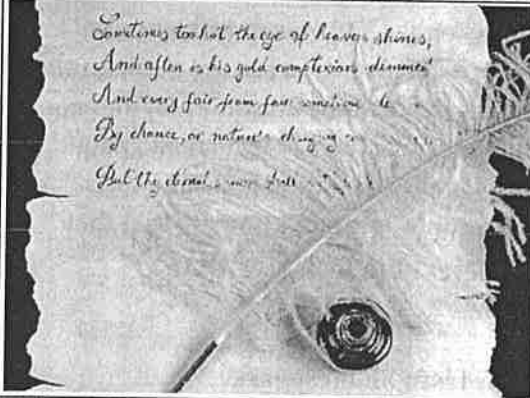 Sometimes too hot the eye of heaven shines,
And often is his gold complexion dimmed
And every fair from fair sometime de
By chance, or nature's changing
But thy eternal summer shall